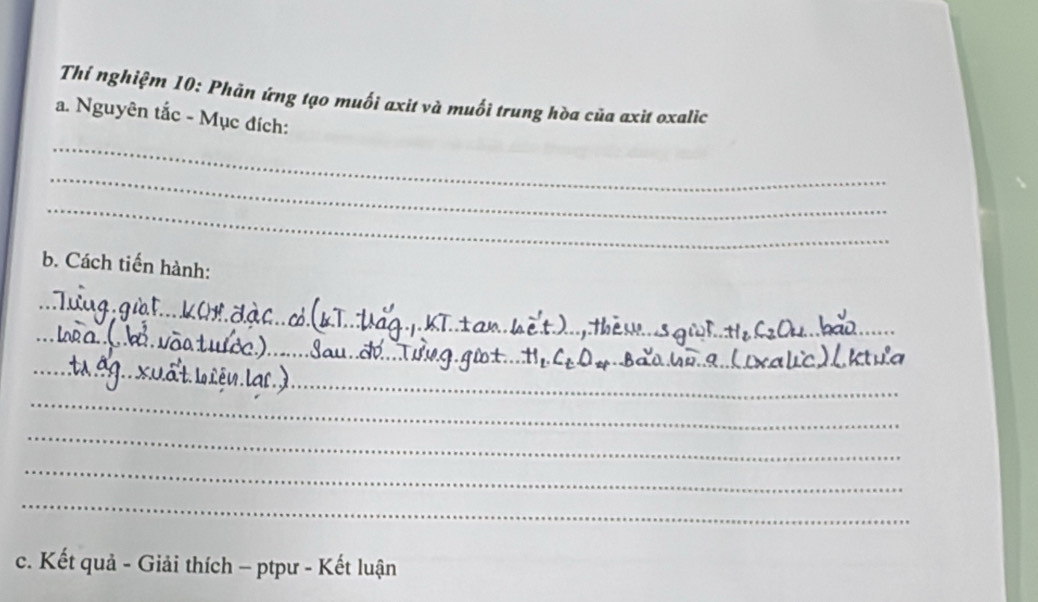 Thí nghiệm 10: Phản ứng tạo muối axit và muối trung hòa của axit oxalic
a. Nguyên tắc - Mục đích:
b. Cách tiến hành:
Từng giọt KOH đặc có (KT trắng, KT tan hết), thêm 5 giọt H₂C₂O₄ bão
hòa (bỏ vào trước) Sau đó Từng giọt H₂C₂O₄ Bão hòa (oxalic) (ktủa
trắng xuất hiện lại)
c. Kết quả - Giải thích – ptpư - Kết luận